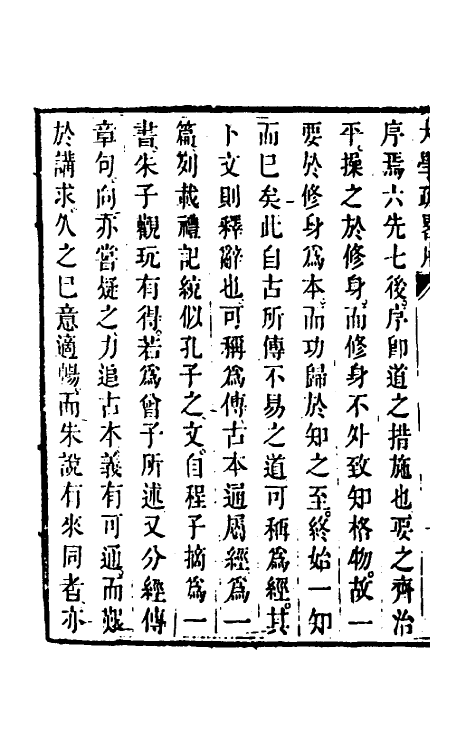 大學疏畧序
序焉六先七後序卽道之措施也要之齊治
平操之於修身而修身不外致知格物故一
要於修身爲本而功歸於知之至終始一知
而已矣此自古所傳不易之道可稱爲經其
下文則釋辭也可稱爲傳古本通屬經爲一
篇列載禮記統似孔子之文自程子摘爲一
書朱子觀玩有得若爲曾子所述又分經傳
章句向亦嘗疑之力追古本義有可通而艱
於講求久之已意適暢而朱說有來同者亦